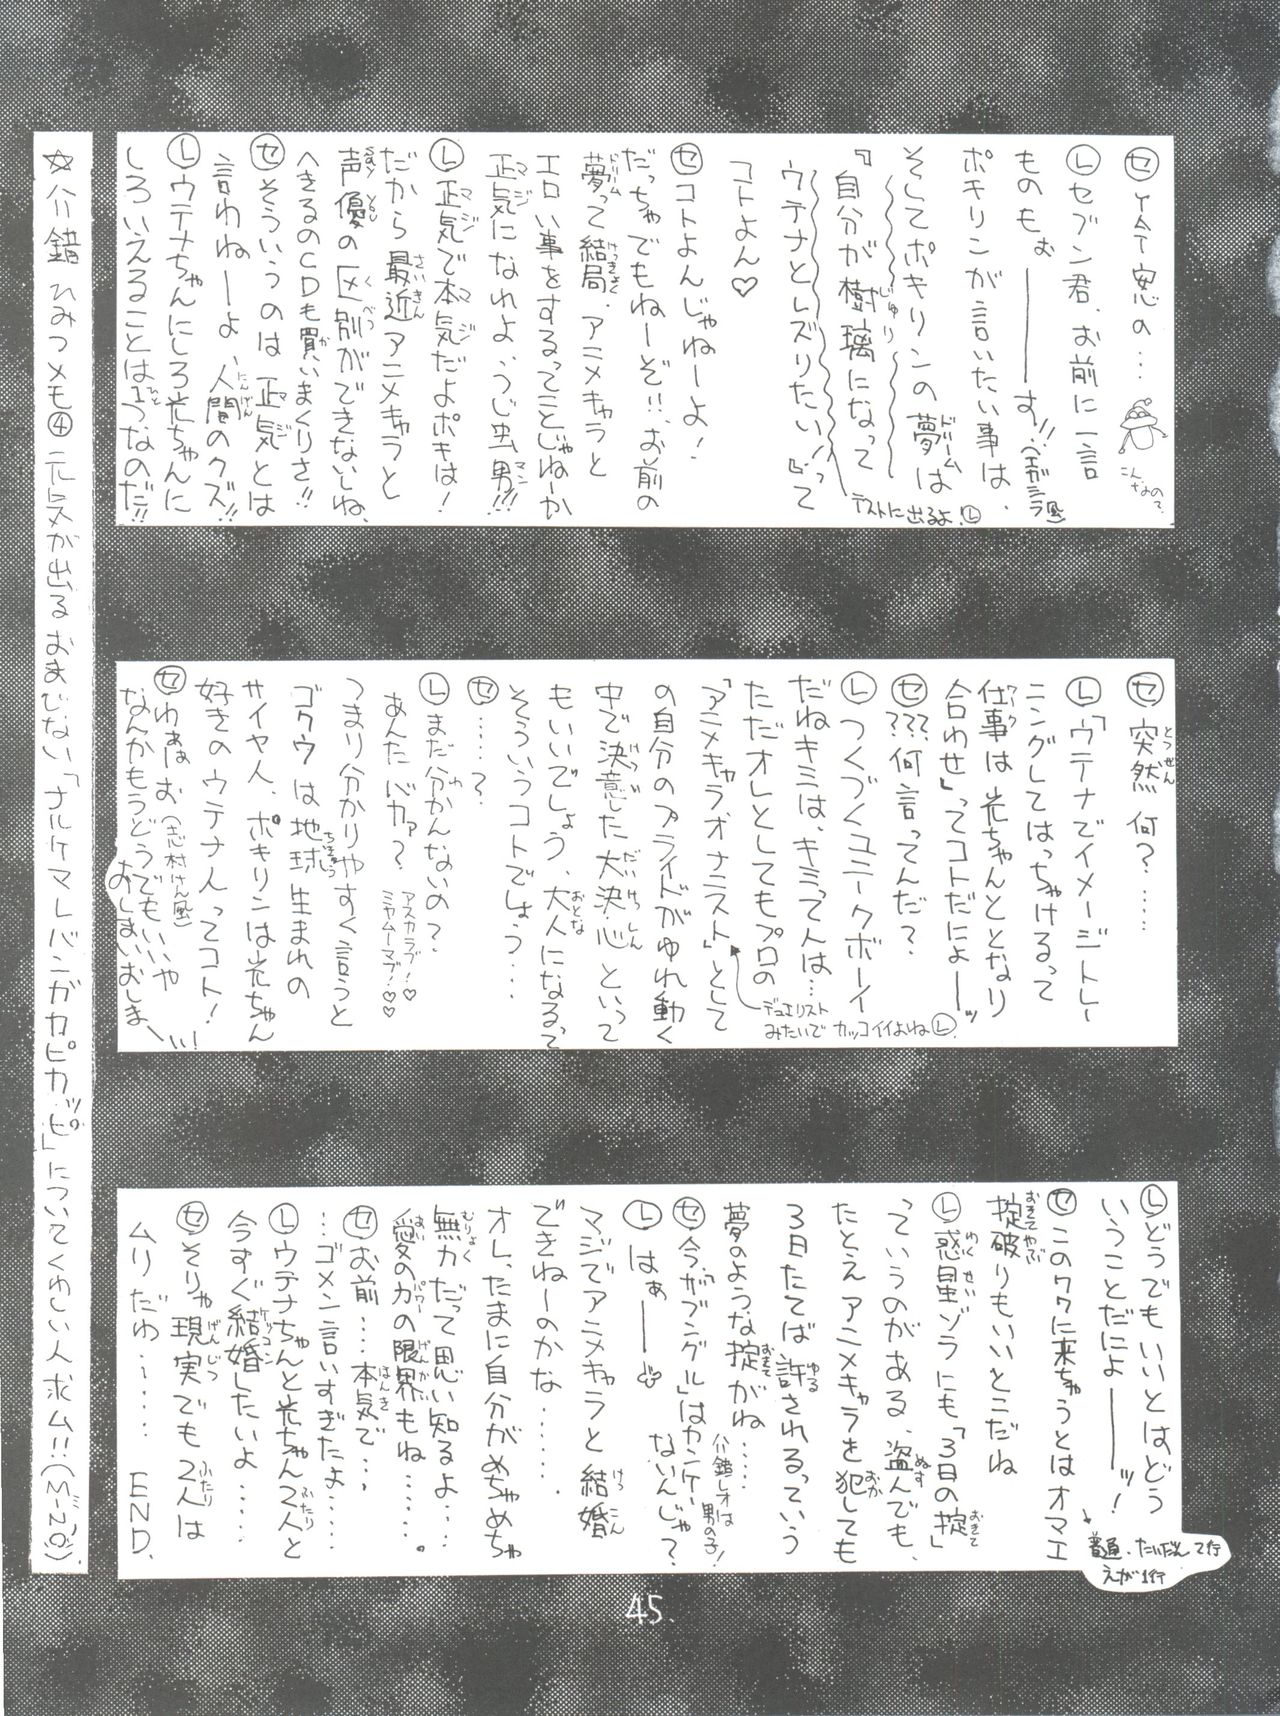 セ 安心の…
こんなので、
レ セブン君、お前に一言
ものもぉーーーーす!!(エガシラ風)
ポキリンが言いたい事は、
そしてポキリンの夢は
ドリーム
『自分が樹璃になって
じゅり
ウテナとレズりたい!』って
コトよん♡
テストに出るよ!レ
セ コトよんじゃねーよ!
だっちゃでもねーぞ!!、お前の
夢って結局、アニメキャラと
ドリーム けっきょく
エロい事をするってことじゃねーか
正気になれよ、うじ虫男!!!
マジ マン
レ 正気で本気だよポキは!
マジ マジ
だから最近アニメキャラと
さいきん
声優の区別ができないしね、
くべつ
へきるのCDも買いまくりさ!!
か
セ そういうのは正気とは
マジ
言わねーよ、人間のクズ!!
にんげん
レ ウテナちゃんにしろ光ちゃんに
しろいえることは1つなのだ!!
ひと
セ 突然何?……
とつぜん
レ「ウテナでイメージトレー
ニングしてはっちゃけるって
仕事は光ちゃんととなり
ワーク
合わせ」ってコトだにょーーッ
セ ???何言ってんだ?
レ つくづくユニークボーイ
だねキミは、キミって人は…
ただオレとしてもプロの
「アニメキャラオナニスト」として
デュエリスト
みたいでカッコイイよねレ
の自分のプライドがゆれ動く
中で決意した大決心といって
けつい だいけっしん
もいいでしょう、大人になるって
おとな
そういうコトでしょう…
セ ……?
レ まだ分かんないの?
わ
あんたバカァ?
アスカラブ!♡
ミヤムーマブ!♡♡
つまり分かりやすく言うと
ゴクウは地球生まれの
ちきゅう
サイヤ人、ポキリンは光ちゃん
好きのウテナ人ってコト!
セ わぁぉ(志村けん風)
なんかもうどうでもいいや
おしまいおしまーい!
レ どうでもいいとはどう
いうことだにょーーーーッ!
セ このワクに来ちゃうとはオマエ
普通、たいだんて行
えが1行
掟破りもいいとこだね
おきてやぶ
レ 惑星ゾラにも「3日の掟」
わくせい おきて
っていうのがある、盗んでも、
ぬす
たとえアニメキャラを犯しても
おか
3日たてば許されるっていう
ゆる
夢のような掟がね……
おきて
セ 今、「ザブングル」はカンケイ
ないんじゃ?
介錯レオは
男の子!
レ はぁーーー
マジでアニメキャラと結婚
けっこん
できねーのかな……
オレ、たまに自分がめちゃめちゃ
無力だって思い知るよ……
むりょく
愛の力の限界もね……。
あい パワー げんかい
セ お前……本気で…
ほんき
…ゴメン言いすぎたよ……
レ ウテナちゃんと光ちゃん2人と
ふたり
今すぐ結婚したいよ……
ケッコン
セ そりゃ現実でも2人は
げんじつ ふたり
ムリだわ…… END.
☆介錯ひみつメモ④元気が出るおまじない「ナルケマレバンガカピカッピ」についてくわしい人求ム!!(M-NO)
45.